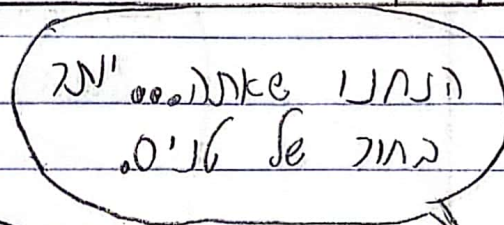 הנחנו שאתה... יותר
בחור של טניס.